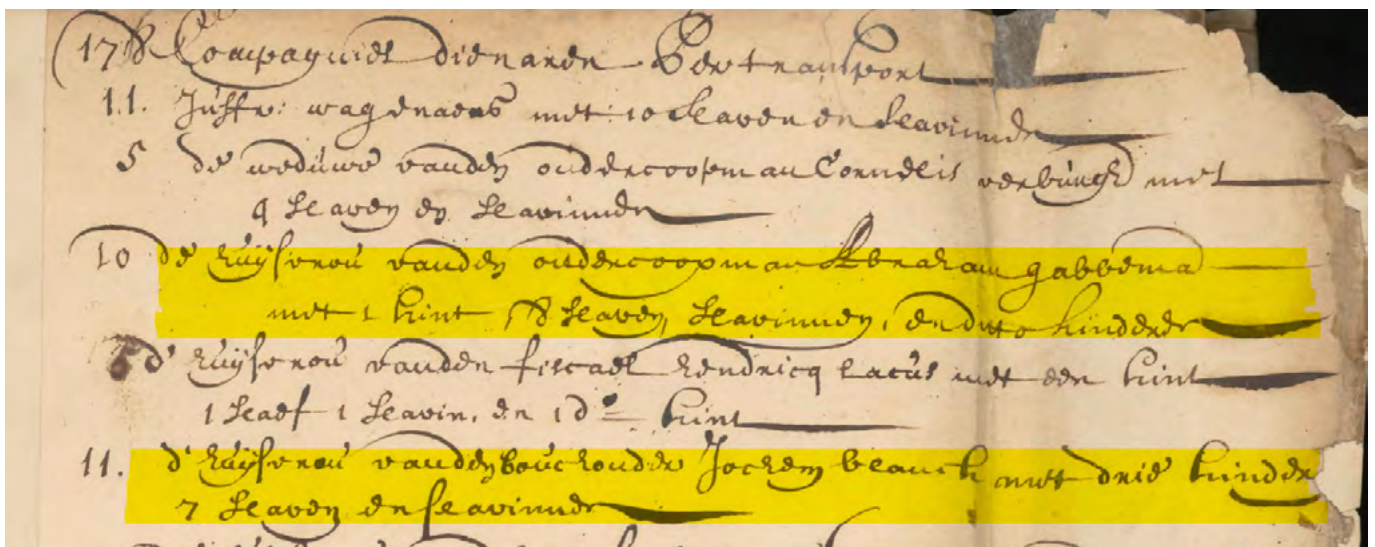 178 Compagnies dienaren Pertransport
11. Juffr: wagenaers met 10 slaven en slavinnen
5 de weduwe vanden ondercoopman Cornelis verburgh met
4 slaven en slavinnen
10 de huijsvrou vanden ondercoopman Abraham gabbema
met 1 kint, 8 slaven, slavinnen, en dito kinderen
5 d' huijsvrou vanden fiscael hendricq Lacus met een kint
1 slaef 1 slavin, en 1 do kint
11. d' huijsvrou vanden bouchouder Jochem blanck met drie kinder
7 slaven en slavinnen